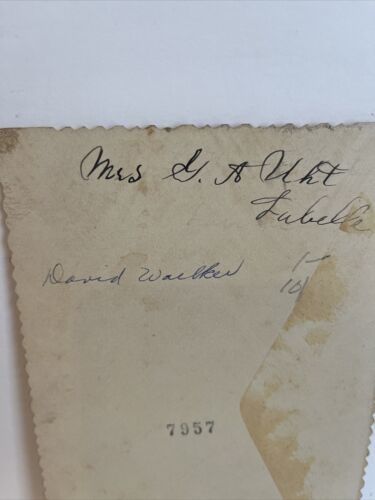 Mrs G. A Uht
Labelle
David Walker
1-
10/
7957